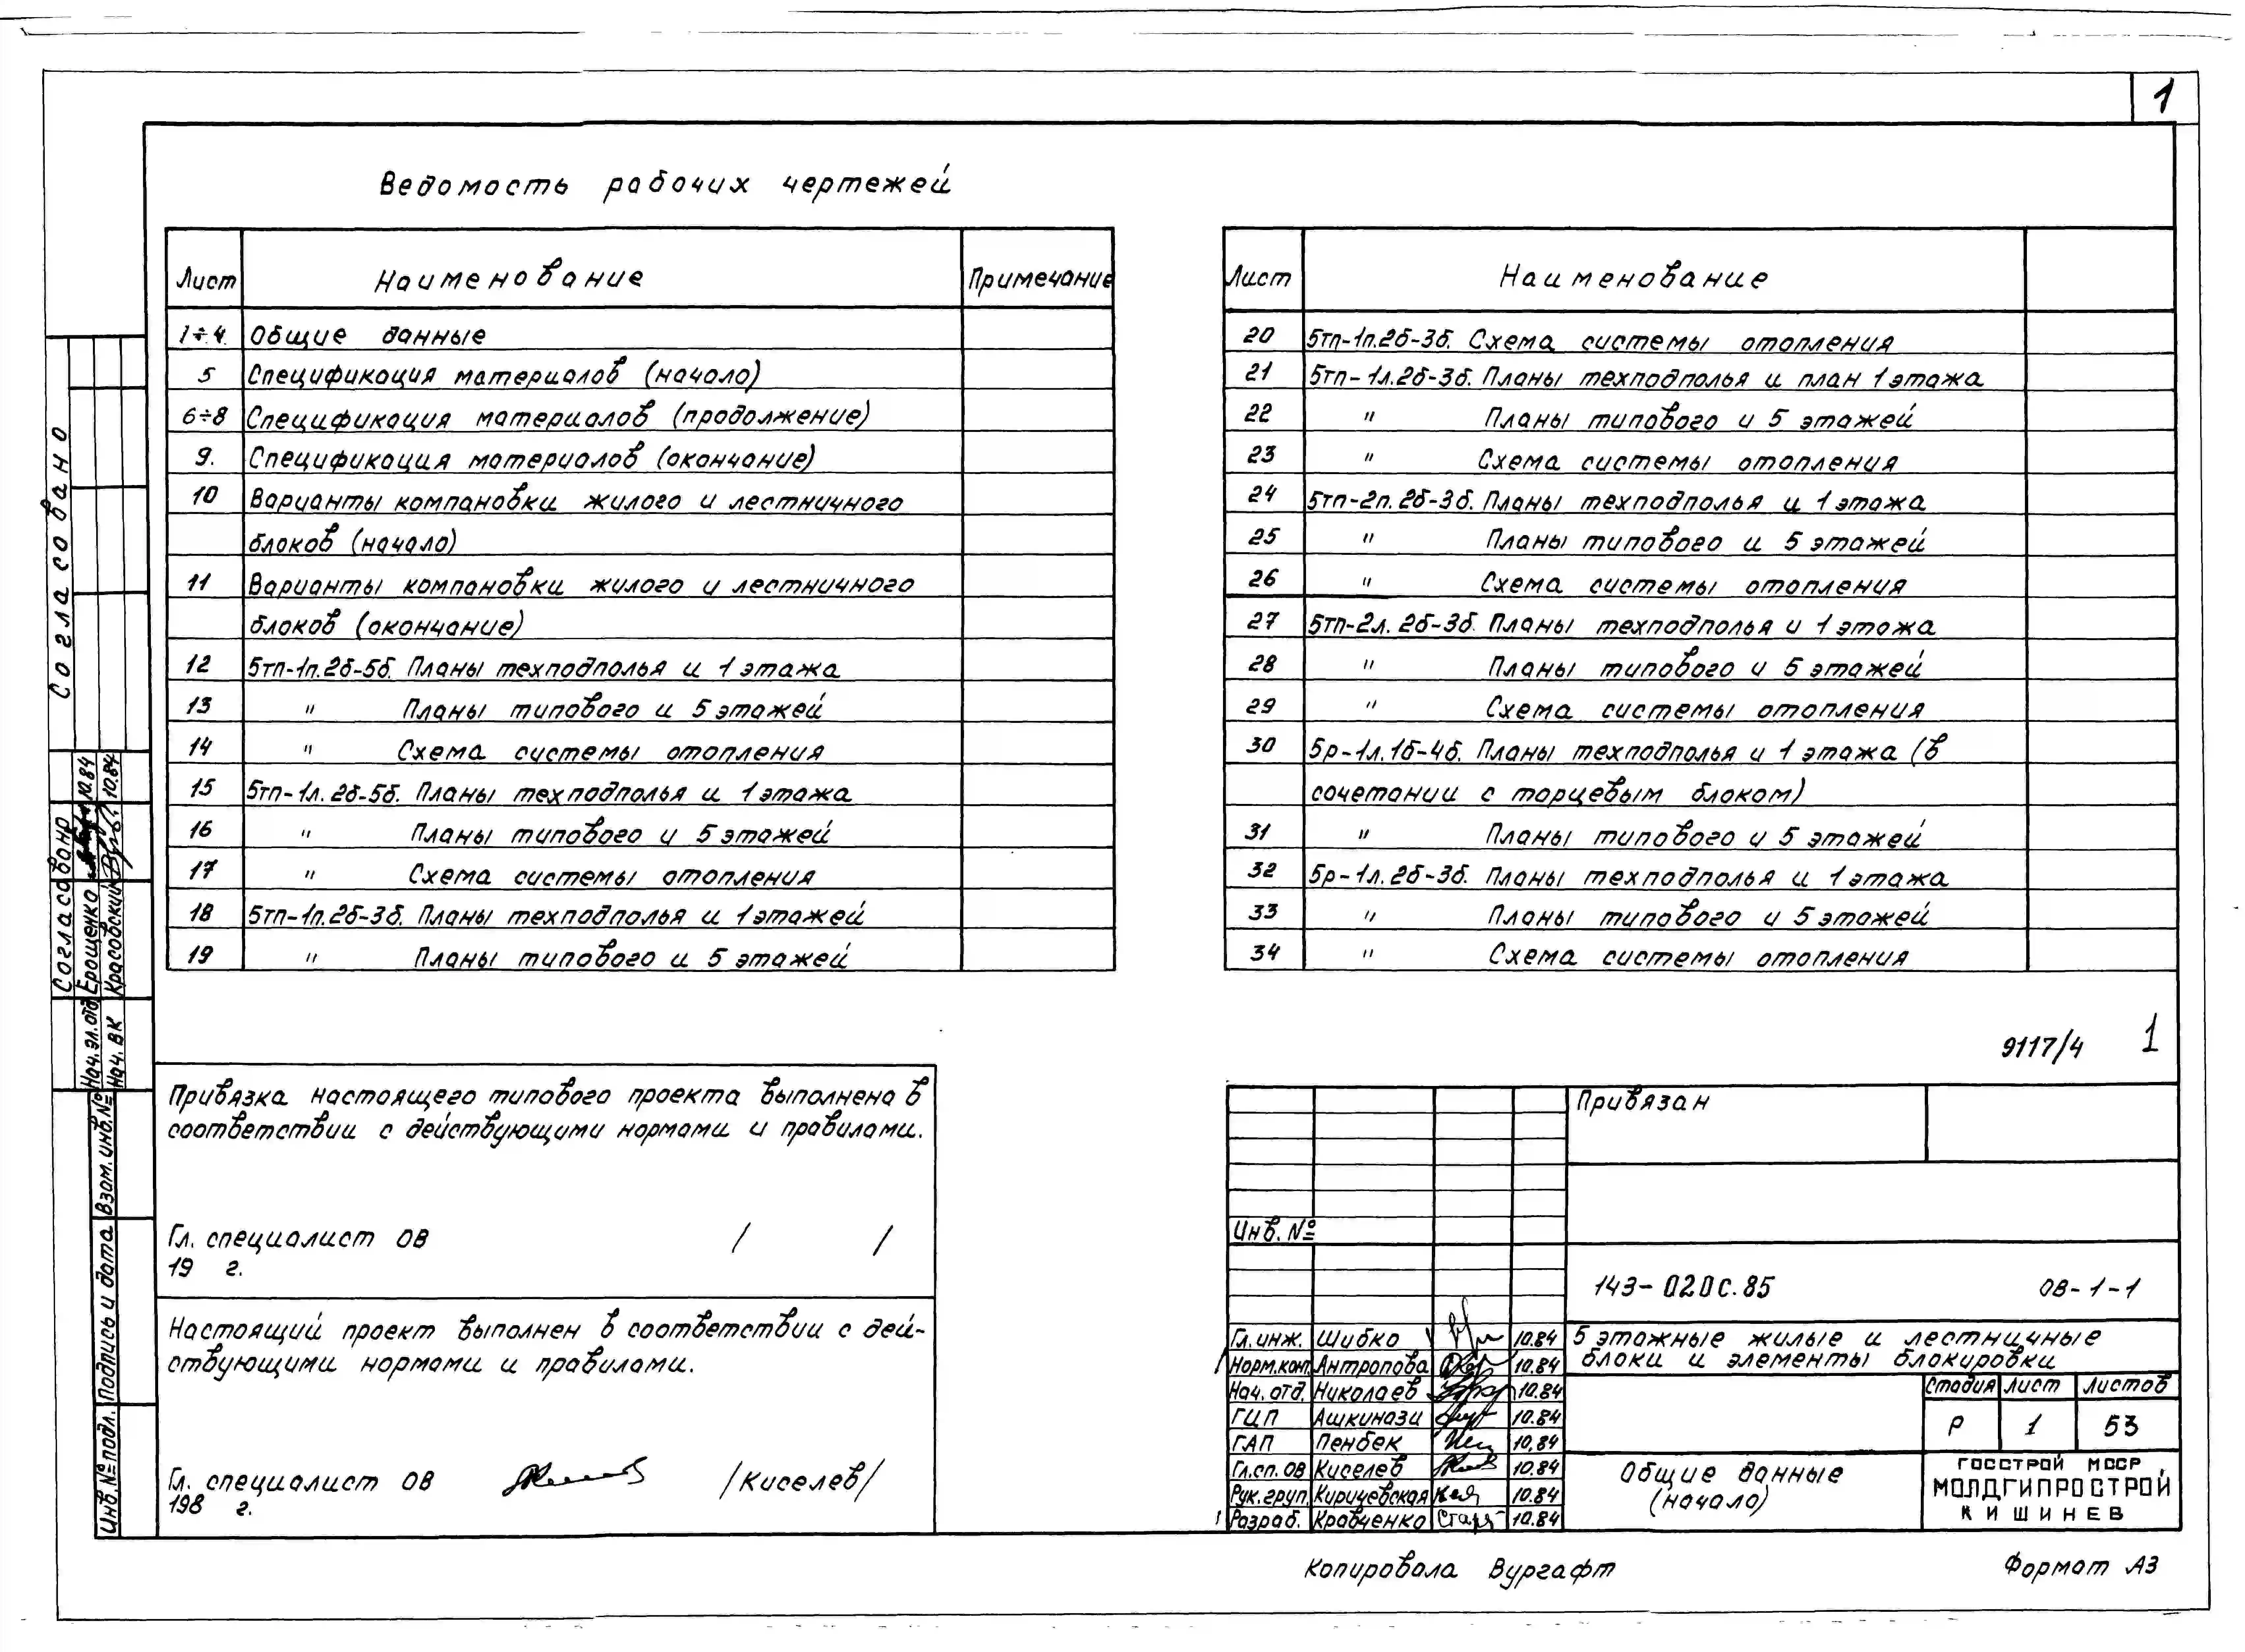 1
Ведомость рабочих чертежей
Лист Наименование Примечание
1÷4 Общие данные
5 Спецификация материалов (начало)
6÷8 Спецификация материалов (продолжение)
9. Спецификация материалов (окончание)
10 Варианты компановки жилого и лестничного
блоков (начало)
11 Варианты компановки жилого и лестничного
блоков (окончание)
12 5тп-1п.2б-5б. Планы техподполья и 1 этажа
13 " Планы типового и 5 этажей
14 " Схема системы отопления
15 5тп-1л.2б-5б. Планы техподполья и 1 этажа
16 " Планы типового и 5 этажей
17 " Схема системы отопления
18 5тп-1п.2б-3б. Планы техподполья и 1 этажей
19 " Планы типового и 5 этажей
Лист Наименование
20 5тп-1п.2б-3б. Схема системы отопления
21 5тп-1л.2б-3б. Планы техподполья и план 1 этажа
22 " Планы типового и 5 этажей
23 " Схема системы отопления
24 5тп-2п.2б-3б. Планы техподполья и 1 этажа
25 " Планы типового и 5 этажей
26 " Схема системы отопления
27 5тп-2л.2б-3б. Планы техподполья и 1 этажа
28 " Планы типового и 5 этажей
29 " Схема системы отопления
30 5р-1л.1б-4б. Планы техподполья и 1 этажа (в
сочетании с торцевым блоком)
31 " Планы типового и 5 этажей
32 5р-1л.2б-3б. Планы техподполья и 1 этажа
33 " Планы типового и 5 этажей
34 " Схема системы отопления
9117/4 1
Согласовано
Согласовано
Нач. эл. отд Ерощенко 10.84
Нач. ВК Красовский 10.84
Взам. инв. №
Подпись и дата
Инв. № подл.
Привязка настоящего типового проекта выполнена в
соответствии с действующими нормами и правилами.
Гл. специалист ОВ / /
19 г.
Настоящий проект выполнен в соответствии с дей-
ствующими нормами и правилами.
Гл. специалист ОВ /Киселев/
198 г.
Привязан
Инв. №
143-020с.85 ОВ-1-1
Гл. инж. Шибко 10.84
Норм.кон. Антропова 10.84
Нач. отд. Николаев 10.84
ГИП Ашкинази 10.84
ГАП Пенбек 10.84
Гл.сп. ОВ Киселев 10.84
Рук. груп. Кирицевская 10.84
Разраб. Кравченко 10.84
5 этажные жилые и лестничные
блоки и элементы блокировки
Стадия Лист Листов
Р 1 53
Общие данные
(начало)
ГОССТРОЙ МССР
МОЛДГИПРОСТРОЙ
КИШИНЕВ
Копировала Вургафт
Формат А3